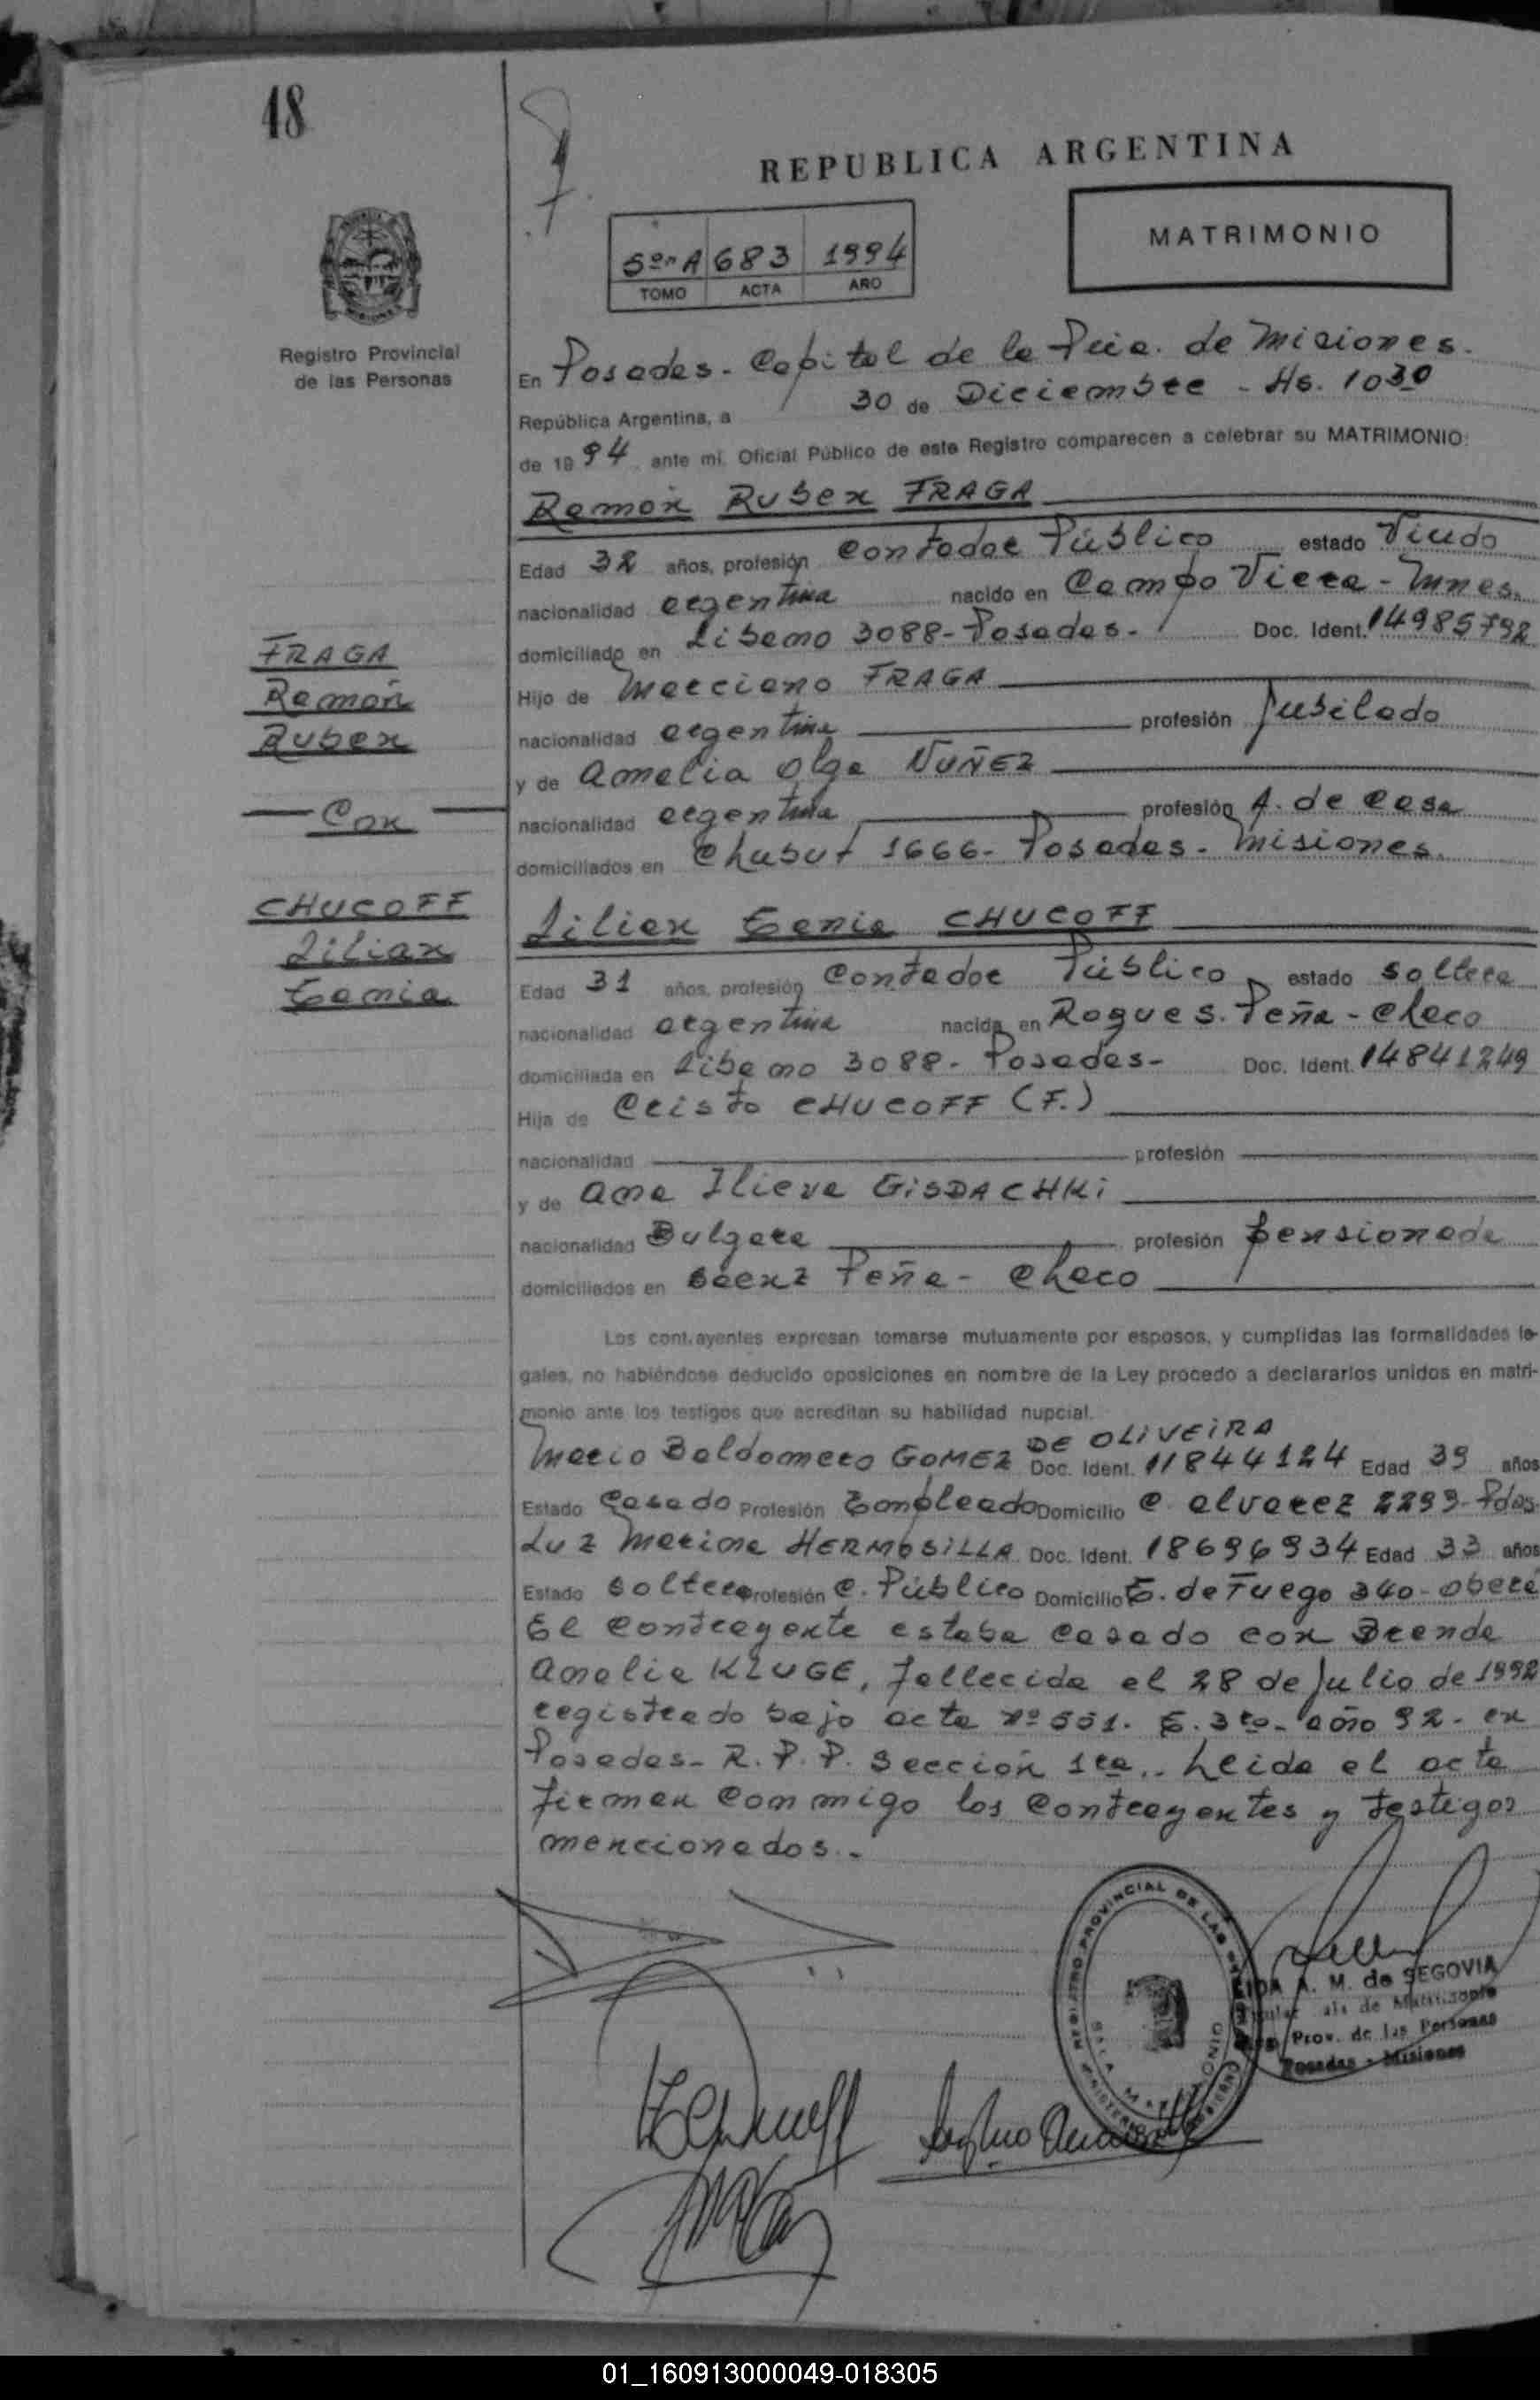 48
REPUBLICA ARGENTINA
MATRIMONIO
5º A 683 1994
TOMO ACTA AÑO
Registro Provincial
de las Personas
En Posadas - Capital de la Pcia. de Misiones.
República Argentina, a 30 de Diciembre - Hs. 10 30
de 1994 ante mi, Oficial Público de este Registro comparecen a celebrar su MATRIMONIO:
Ramón Ruben FRAGA
Edad 32 años, profesión Contador Público estado Viudo
nacionalidad argentina nacido en Campo Viera - Mnes.
domiciliado en Libamo 3088 - Posadas - Doc. Ident. 14985792
Hijo de Marciano FRAGA
nacionalidad argentina profesión Jubilado
y de Amelia Olga NUÑEZ
nacionalidad argentina profesión A. de Casa
domiciliados en Chubut 1666 - Posadas - Misiones.
FRAGA
Ramón
Ruben
Con
CHUCOFF
Lilian
Lilian CHUCOFF
Edad 31 años, profesión Contador Público estado soltera
nacionalidad argentina nacida en Roque S. Peña - Chaco
domiciliada en Libamo 3088 - Posadas - Doc. Ident. 14841249
Hija de Cristo CHUCOFF (F.)
nacionalidad profesión
y de Ana Ilieva GISDACHKi
nacionalidad Bulgara profesión pensionada
domiciliados en Saenz Peña - Chaco
Los contrayentes expresan tomarse mutuamente por esposos, y cumplidas las formalidades le-
gales, no habiéndose deducido oposiciones en nombre de la Ley procedo a declararlos unidos en matri-
monio ante los testigos que acreditan su habilidad nupcial.
Mario Baldomero GOMEZ DE OLiVEiRA Doc. Ident. 11844124 Edad 39 años
Estado Casado Profesión Empleado Domicilio C. Alvarez 2299 - Pdas.
Luz Marina HERMOSILLA Doc. Ident. 18696934 Edad 33 años
Estado soltera Profesión C. Público Domicilio T. de Fuego 340 - Oberá
El Contrayente estaba casado con Brenda
Amalia KLUGE, fallecida el 28 de Julio de 1992
registrado bajo acta nº 551. T. 3ro - año 92 - en
Posadas - R. P. P. Sección 1ra.. Leida el acta
firman conmigo los contrayentes y testigos
mencionados.-
REGISTRO PROVINCIAL DE LAS
A. M. de SEGOVIA
Prov. de las Personas
Posadas - Misiones
01_160913000049-018305